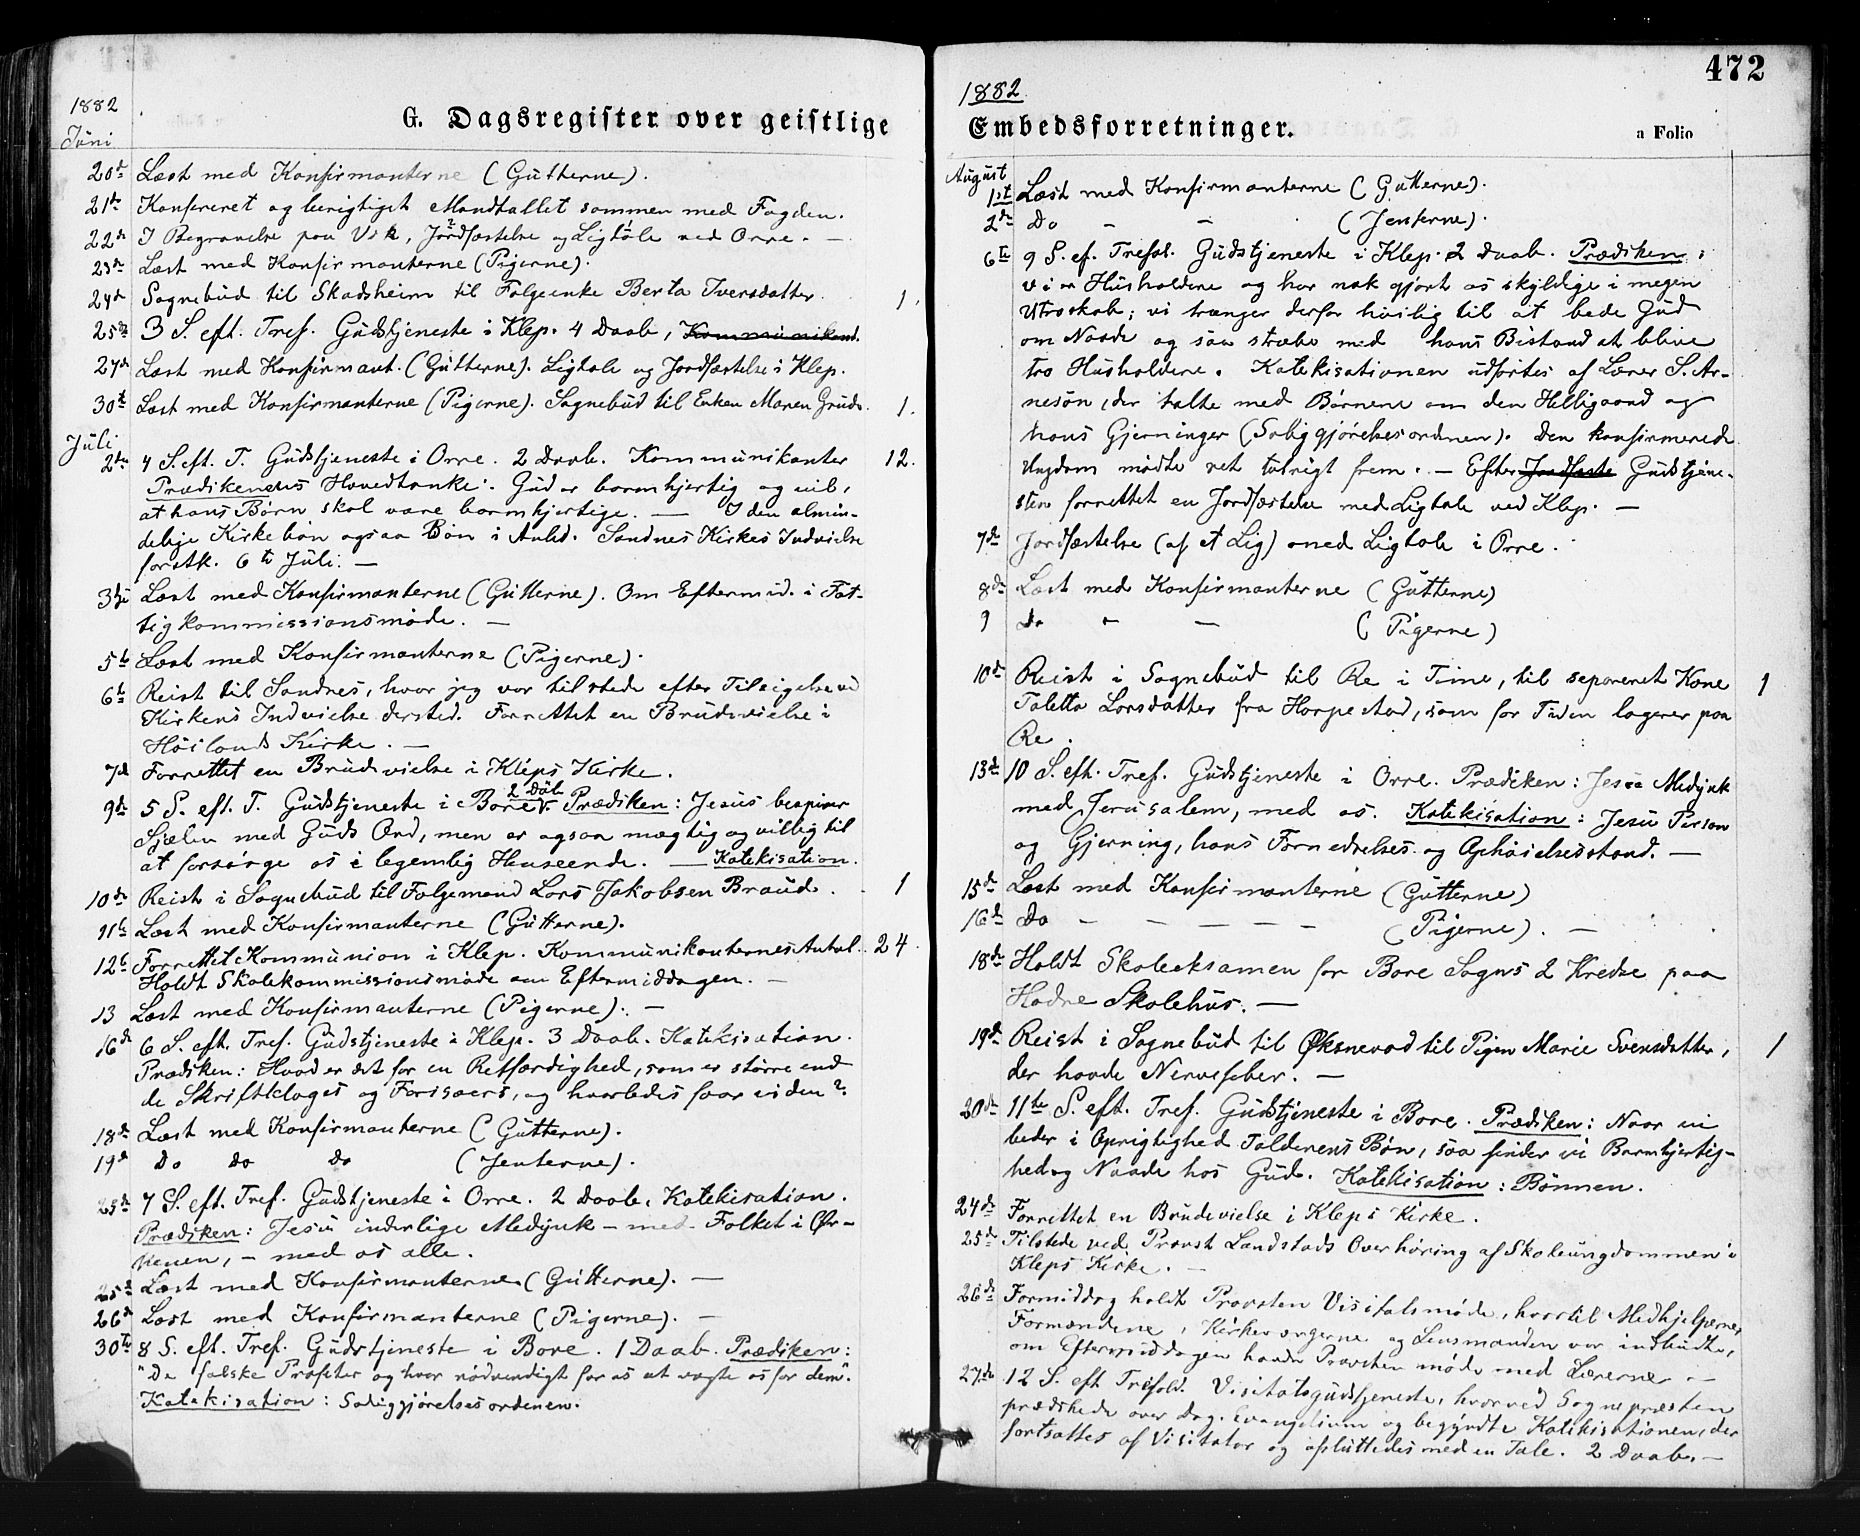 1882
G. Dagsregister over geistlige
Juni
20de Læst med Konfirmanterne (Gutterne).
21de Konfereret og berigtiget Mandtallet sammen med Fogden.
22de I Begravelse paa Vik, 2 Jordfæstelse og Ligtale ved Orre. —
23de Læst med Konfirmanterne (Pigerne).
24de Sognebud til Skadsheim til Folgeenke Berta Iversdatter. 1.
25de 3 S. eft. Tref. Gudstjeneste i Klep. 4 Daab, Kommunikant.
27de Læst med Konfirmant. (Gutterne). Ligtale og Jordfæstelse i Klep.
30te Læst med Konfirmanterne (Pigerne). Sognebud til Enken Maren Grude. 1.
Juli
2den 4 S. eft. T. Gudstjeneste i Orre. 2 Daab. Kommunikanter 12.
Prædikenens Hovedtanke: Gud er barmhjertig og vil,
at hans Børn skal være barmhjertige. — I den almin-
delige Kirkebøn ogsaa Bøn i Anled. Sandnes Kirkes Indvielse
forstk. 6te Juli. —
3die Læst med Konfirmanterne (Gutterne). Om Eftermid. i Fat-
tigkommissionsmøde. —
5te Læst med Konfirmanterne (Pigerne).
6te Reist til Sandnes, hvor jeg var tilstede efter Tilsigelse ved
Kirkens Indvielse dersted. Forrettet en Brudevielse i
Höilands Kirke. —
7de Forrettet en Brudevielse i Kleps Kirke.
9de 5 S. eft. T. Gudstjeneste i Bore. 2 Dåb. Prædiken: Jesus bespiser
Sjælen med Guds Ord, men er ogsaa mægtig og villig til
at forsørge os i legemlig Henseende. — Katekisation.
10de Reist i Sognebud til Folgemand Lars Jakobsen Braud. 1
11te Læst med Konfirmanterne (Gutterne).
12te Forrettet Kommunion i Klep. Kommunikanternes Antal. 24.
Holdt Skolekommissionsmøde om Eftermiddagen. —
13 Læst med Konfirmanterne (Pigerne). —
16de 6 S. eft. Tref. Gudstjeneste i Klep. 3 Daab. Katekisation.
Prædiken: Hvad er det for en Retfærdighed, som er større end
de Skriftkloges og Farisæers, og hvorledes faar vi den?
18de Læst med Konfirmanterne (Gutterne).
19de Do Do Do (Jenterne).
23de 7 S. eft. Tref. Gudstjeneste i Orre. 2 Daab. Katekisation.
Prædiken: Jesu inderlige Medynk — med Folket i Ør-
kenen, — med os alle.
25de Læst med Konfirmanterne (Gutterne). —
26de Læst med Konfirmanterne (Pigerne). —
30te 8 S. eft. Tref. Gudstjeneste i Bore. 1 Daab. Prædiken:
"De falske Profeter og hvor nødvendigt for os at vogte os for dem".
Katekisation: Saliggjørelsesordenen.
472
1882
Embedsforretninger.
a Folio
August
1st Læst med Konfirmanterne (Gutterne).
2den Do - - (Jenterne).
6te 9 S. ef. Trefol. Gudstjeneste i Klep. 2 Daab. Prædiken:
vi er Husholdere og har nok gjort os skyldige i megen
Utroskab; vi trænger derfor hvilig til at bede Gud
om Naade og saa stræbe med hans Bistand at blive
tro Husholdere. Katekisationen udførtes af Lærer S. Ar-
nesøn, der talte med Børnene om den Helligaand og
hans Gjerninger (Saliggjørelsesordnen). Den konfirmerede
Ungdom mødte ret talrigt frem. — Efter Jordfæste Gudstjene-
sten forrettet en Jordfæstelse med Ligtale ved Klep. —
7de Jordfæstelse (af et Lig) med Ligtale i Orre.
8de Læst med Konfirmanterne (Gutterne)
9 Do - - (Pigerne)
10de Reist i Sognebud til Re i Time, til separeret Kone 1
Taletta Larsdatter fra Horpestad, som for Tiden logerer paa
Re.
13de 10 S. eft. Tref. Gudstjeneste i Orre. Prædiken: Jesu Medynk
med Jerusalem, med os. Katekisation: Jesu Person
og Gjerning, hans Fornedrelses og Ophøielsesstand. —
15de Læst med Konfirmanterne (Gutterne)
16de Do - - - - (Pigerne). —
18de Holdt Skoleeksamen for Bore Sogns 2 Kredse paa
Hodne Skolehus. —
19de Reist i Sognebud til Øksnevad til Pigen Marie Svensdatter, 1
der havde Nervefeber. —
20de 11te S. eft. Tref. Gudstjeneste i Bore. Prædiken: Naar vi
beder i Oprigtighed Tolderens Bøn, saa finder vi Barmhjertig-
hed og Naade hos Gud. Katekisation: Bønnen.
24de Forrettet en Brudevielse i Kleps Kirke.
25de Tilstede ved Provst Landstads Overhøring af Skoleungdommen i
Kleps Kirke. —
26de Formiddag holdt Provsten Visitatsmøde, hvortil Medhjelperne,
Formændene, Kirkeværgerne og Lensmanden var indbudte,
om Eftermiddagen havde Provsten møde med Lærerne. —
27de 12 S. eft Trefold. Visitatsgudstjeneste, hvorved Sognepræsten
prædikede over Dag. Evangelium og begyndte Katekisationen, der
fortsattes af Visitator og afsluttedes med en Tale. 2 Daab. —